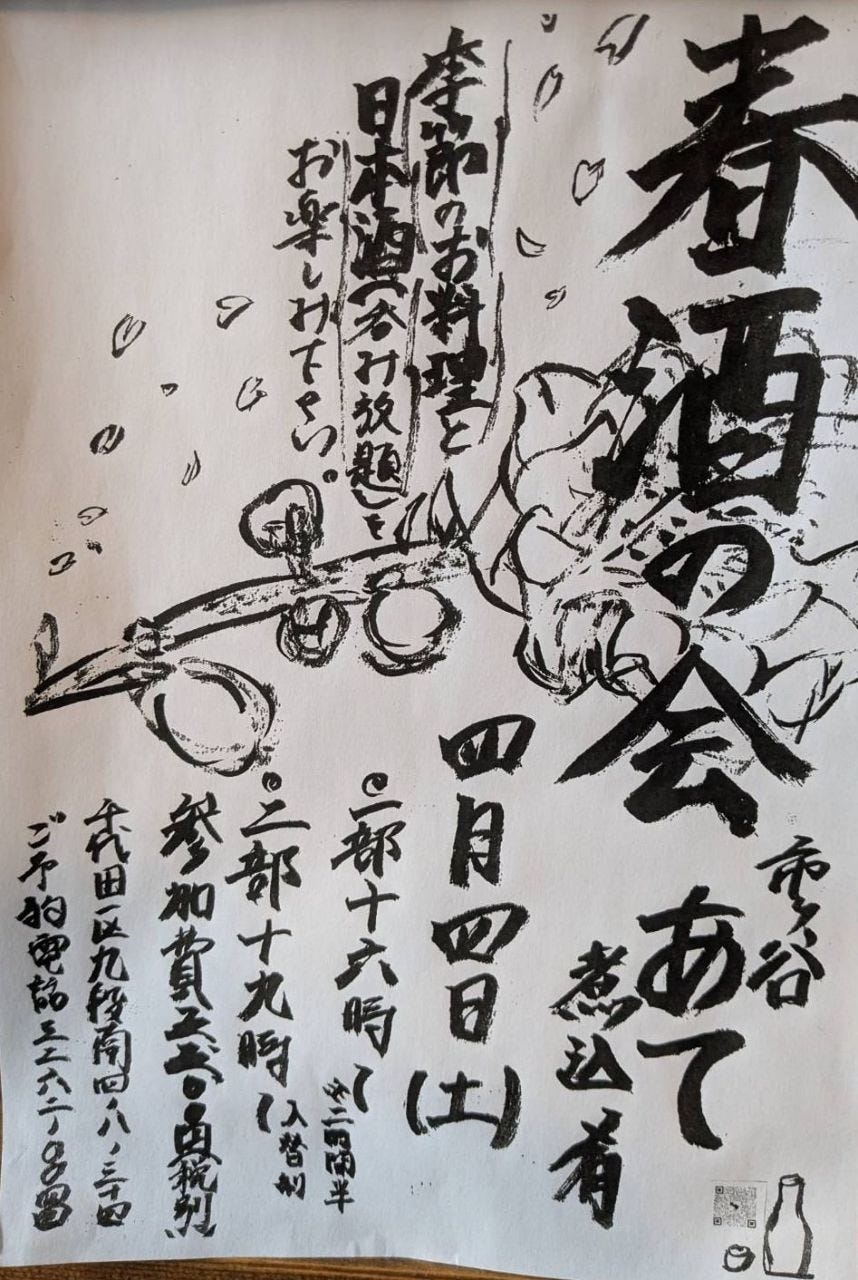 春酒の会
季節のお料理と
日本酒(呑み放題)を
お楽しみ下さい。
市ヶ谷
あて
煮込
肴
四月四日(土)
一部十六時〜
各二時間半
二部十九時〜
入替制
参加費 円(税別)
千代田区九段南四ノ八ノ三十四
ご予約電話三二六二